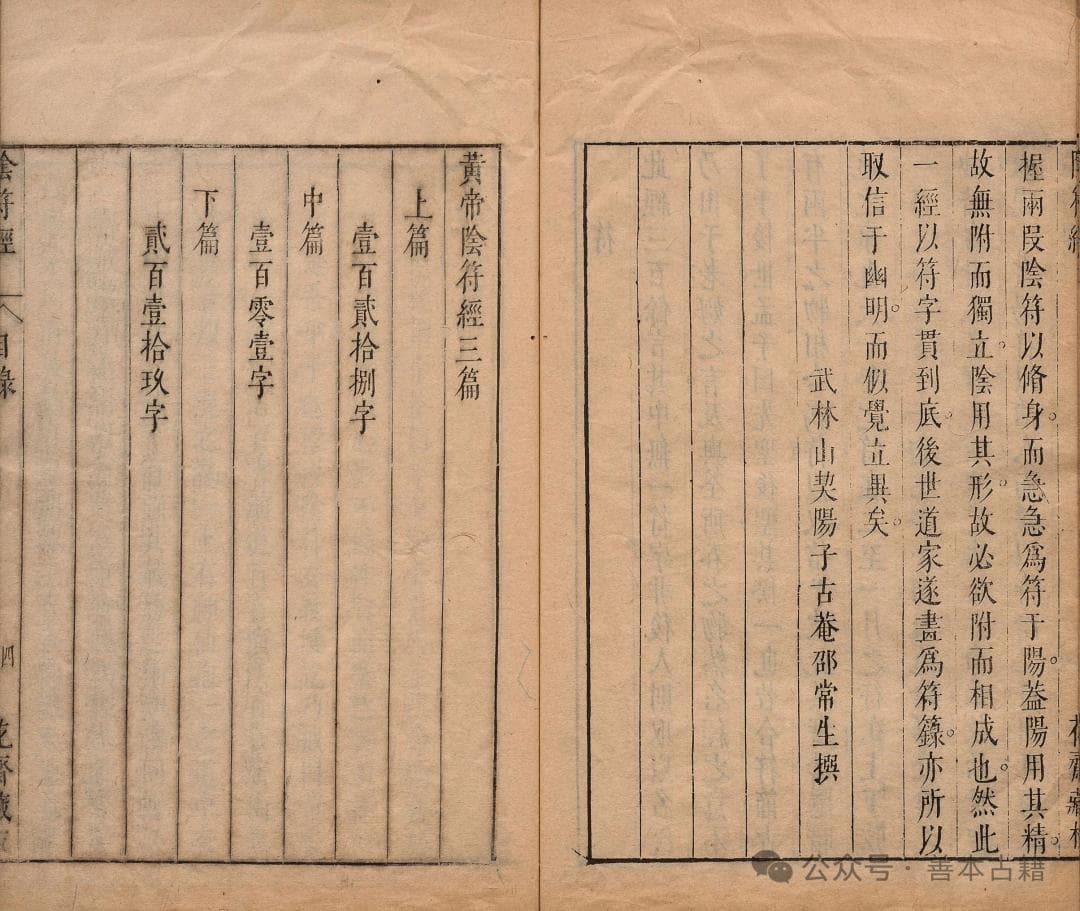 握兩叚陰符以脩身。而急急爲符于陽。葢陽用其精。
故無附而獨立。陰用其形。故必欲附而相成也。然此
一經以符字貫到底。後世道家遂盡爲符籙。亦所以
取信于幽明。而似覺立異矣。
武林山契陽子古菴邵常生撰
黃帝陰符經三篇
上篇
壹百貳拾捌字
中篇
壹百零壹字
下篇
貳百壹拾玖字
陰符經 目錄 四
公众号·善本古籍